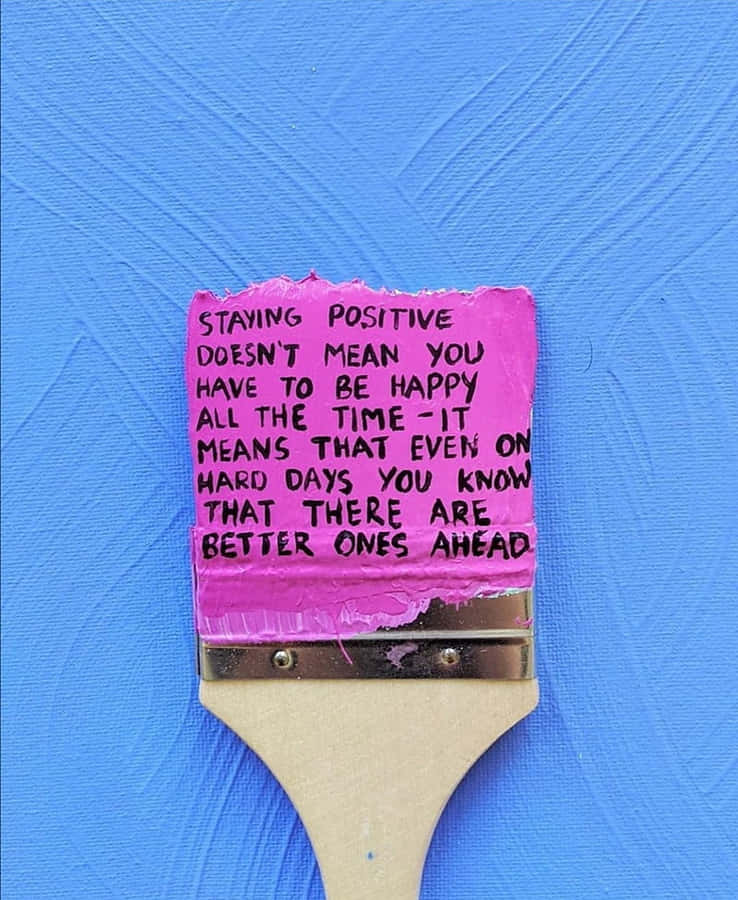 STAYING POSITIVE
DOESN'T MEAN YOU
HAVE TO BE HAPPY
ALL THE TIME - IT
MEANS THAT EVEN ON
HARD DAYS YOU KNOW
THAT THERE ARE
BETTER ONES AHEAD